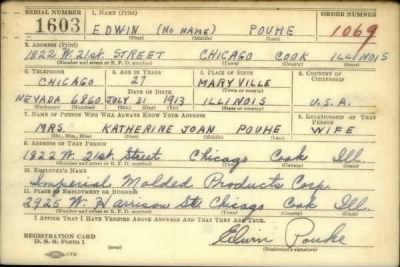 SERIAL NUMBER 1. NAME (Print) ORDER NUMBER
1603 EDWIN (NO NAME) POUHE 1069
(First) (Middle) (Last)
2. ADDRESS (Print)
1822 W. 21st. STREET CHICAGO COOK ILLINOIS
(Number and street or R. F. D. number) (Town) (County) (State)
3. TELEPHONE 4. AGE IN YEARS 5. PLACE OF BIRTH 6. COUNTRY OF CITIZENSHIP
CHICAGO 27 MARYVILLE
DATE OF BIRTH (Town or county)
NEVADA 6860 JULY 31 1913 ILLINOIS U.S.A.
(Exchange) (Number) (Mo.) (Day) (Yr.) (State or country)
7. NAME OF PERSON WHO WILL ALWAYS KNOW YOUR ADDRESS 8. RELATIONSHIP OF THAT PERSON
MRS. KATHERINE JOAN POUHE WIFE
(Mr., Mrs., Miss) (First) (Middle) (Last)
9. ADDRESS OF THAT PERSON
1822 W. 21st Street Chicago Cook Ill.
(Number and street or R. F. D. number) (Town) (County) (State)
10. EMPLOYER'S NAME
Imperial Molded Products Corp.
11. PLACE OF EMPLOYMENT OR BUSINESS
2925 W. Harrison St. Chicago Cook Ill.
(Number and street or R. F. D. number) (Town) (County) (State)
I AFFIRM THAT I HAVE VERIFIED ABOVE ANSWERS AND THAT THEY ARE TRUE.
REGISTRATION CARD
D. S. S. Form 1 Edwin Pouhe
(Registrant's signature)